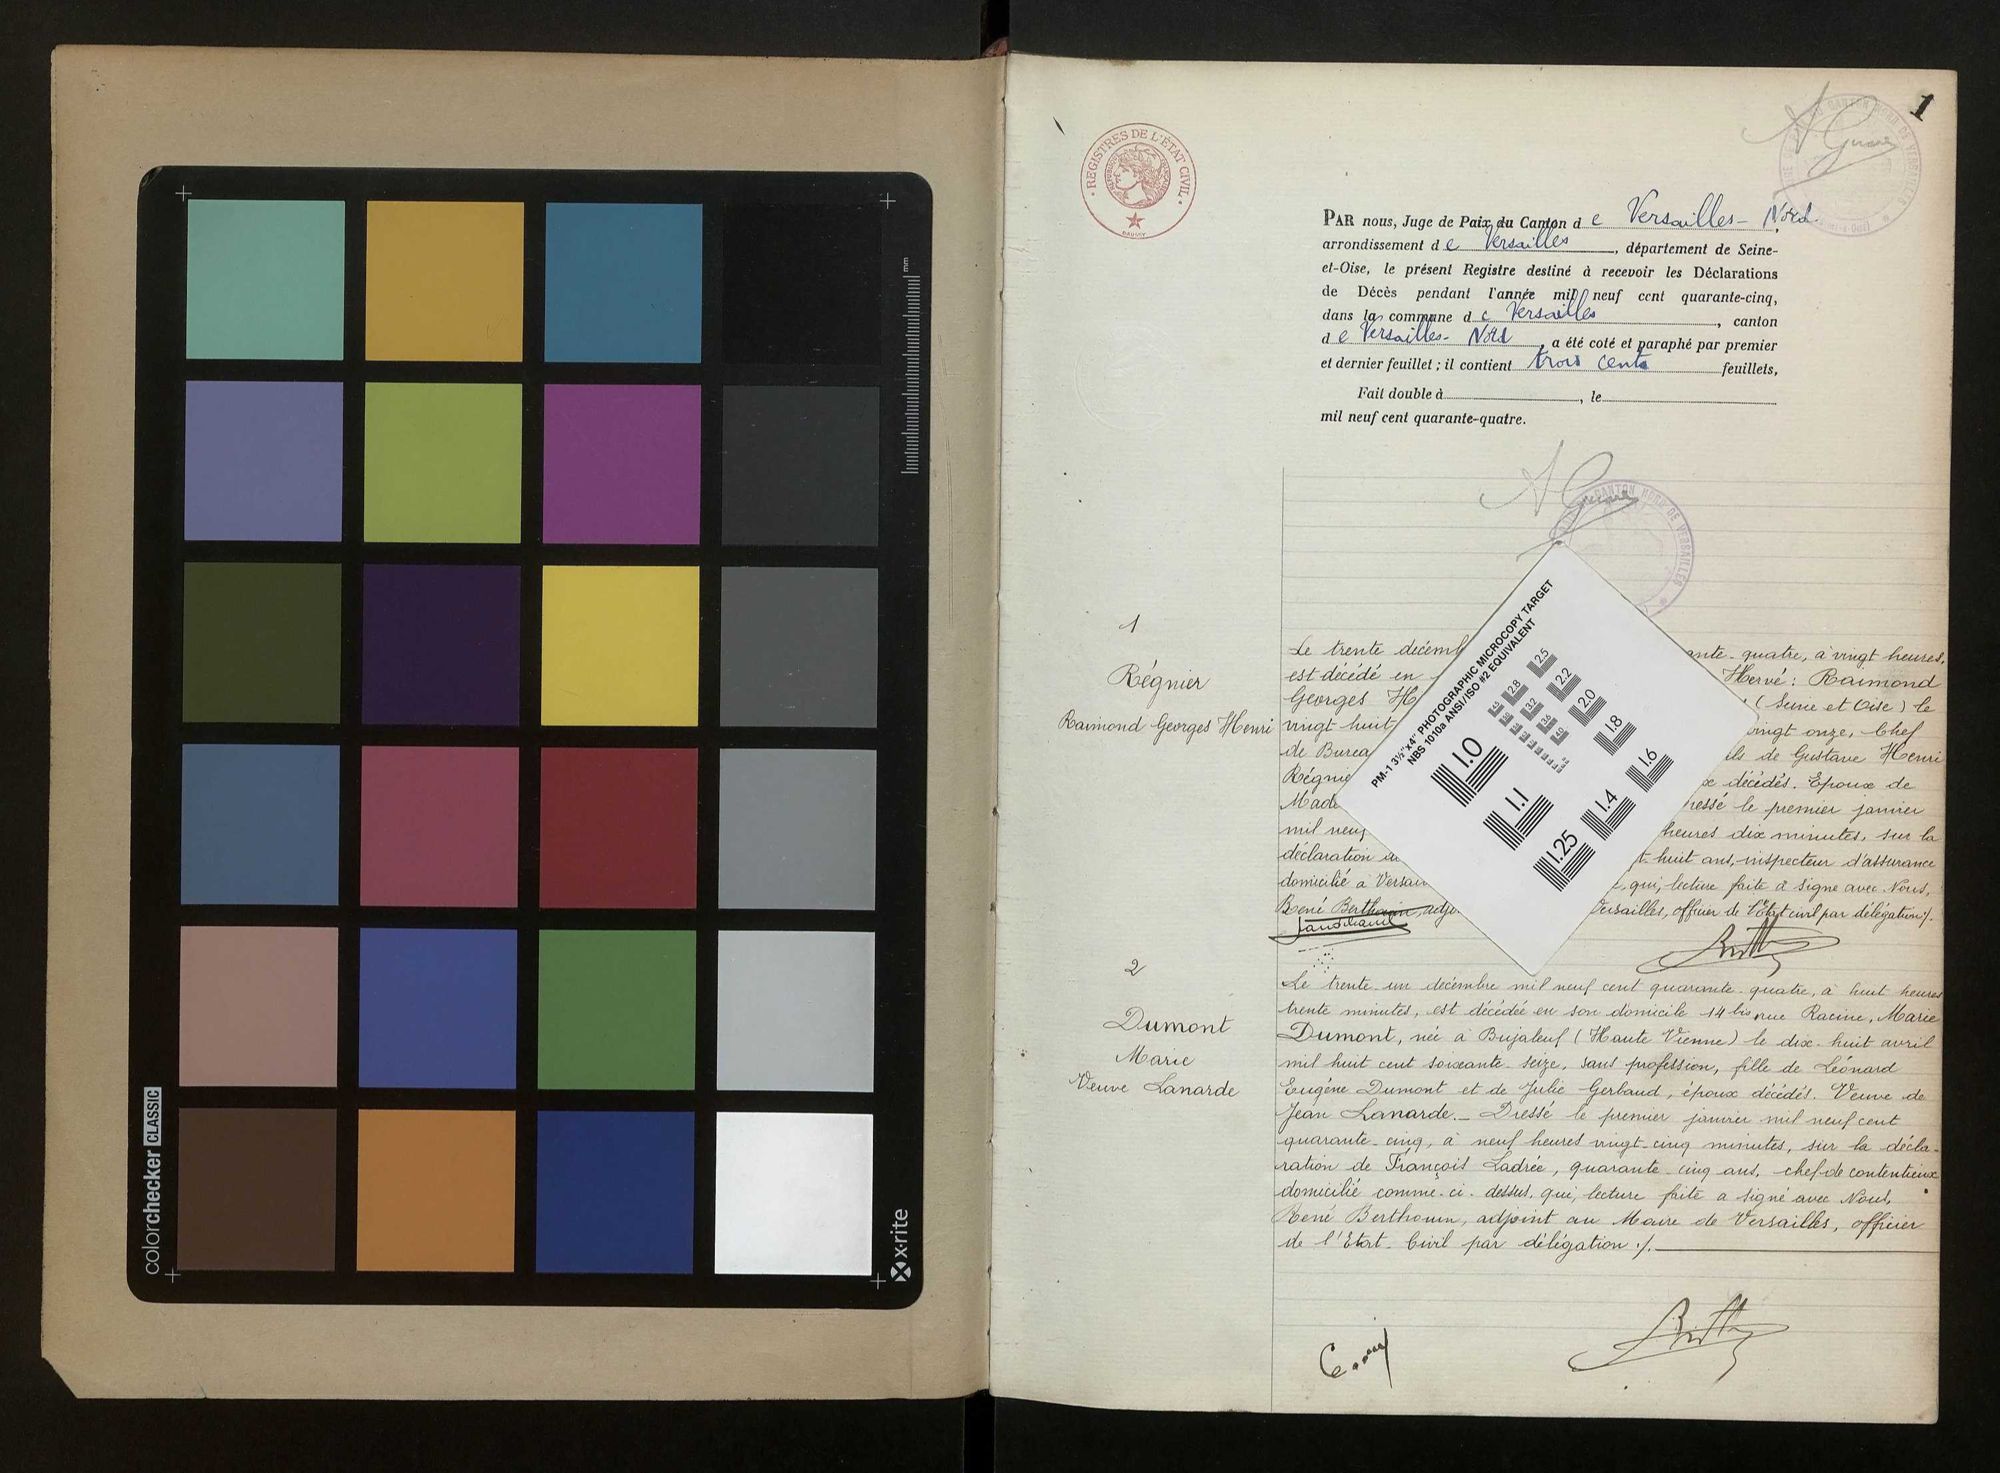 colorchecker CLASSIC
x-rite
mm
1
REGISTRES DE L'ÉTAT CIVIL
CANTON NORD DE VERSAILLES
PAR nous, Juge de Paix du Canton de Versailles-Nord,
arrondissement de Versailles, département de Seine-
et-Oise, le présent Registre destiné à recevoir les Déclarations
de Décès pendant l'année mil neuf cent quarante-cinq,
dans la commune de Versailles, canton
de Versailles-Nord, a été coté et paraphé par premier
et dernier feuillet ; il contient trois cents feuillets,
Fait double à , le
mil neuf cent quarante-quatre.
CANTON NORD DE VERSAILLES
PM-1 3½"x4" PHOTOGRAPHIC MICROCOPY TARGET
NBS 1010a ANSI/ISO #2 EQUIVALENT
1.0
1.1
1.25
1.4
1.6
1.8
2.0
2.2
2.5
2.8
3.2
3.6
4.0
4.5
1
Régnier
Raimond Georges Henri
Le trente décemb ante-quatre, à vingt heures,
est décédé en Hervé : Raimond
Georges H (Seine et Oise) le
vingt huit vingt onze, Chef
de Burea ils de Gustave Henri
Régnie décédés. Epoux de
Made ressé le premier janvier
mil neuf heures dix minutes, sur la
déclaration huit ans, inspecteur d'assurance
domicilié à Versai , qui, lecture faite a signé avec Nous,
René Berthouin, adjo Versailles, officier de l'État civil par délégation ./.
2
Dumont
Marie
Veuve Lanarde
Le trente-un décembre mil neuf cent quarante-quatre, à huit heures
trente minutes, est décédée en son domicile 14 bis rue Racine, Marie
Dumont, née à Bujaleuf (Haute Vienne) le dix-huit avril
mil huit cent soixante-seize, sans profession, fille de Léonard
Eugène Dumont et de Julie Gerbaud, époux décédés. Veuve de
Jean Lanarde.- Dressé le premier janvier mil neuf cent
quarante-cinq, à neuf heures vingt-cinq minutes, sur la décla-
ration de François Ladrée, quarante-cinq ans, chef de contentieux
domicilié comme-ci-dessus, qui, lecture faite a signé avec Nous,
René Berthouin, adjoint au Maire de Versailles, officier
de l'Etat-Civil par délégation ./.